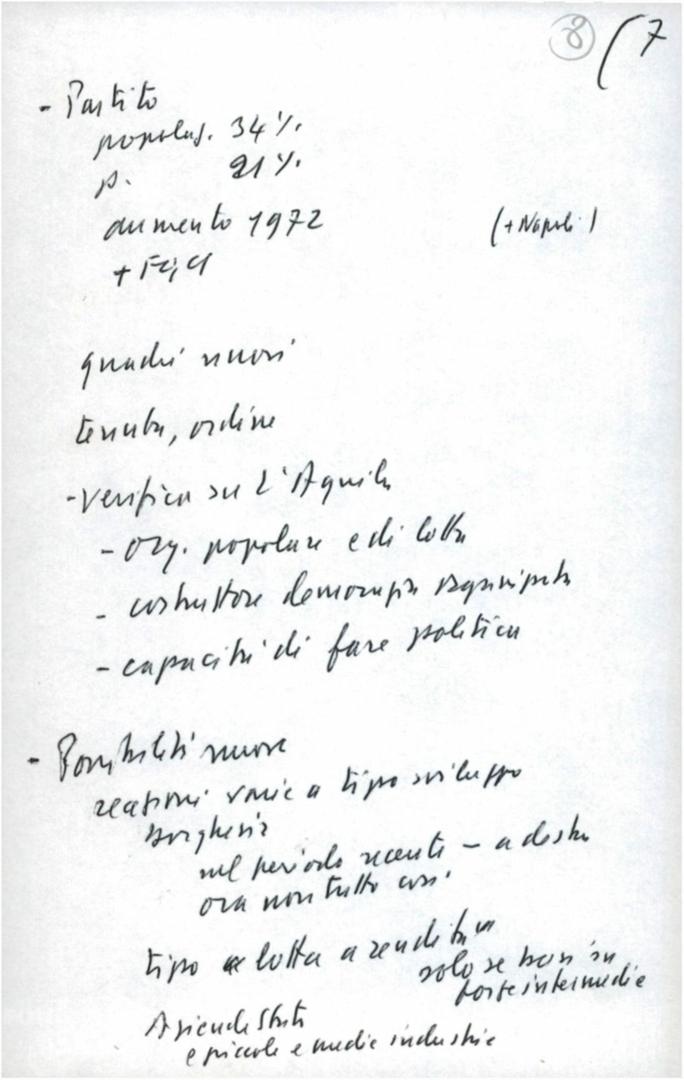 8 (7
- Partito
popolaz. 34%
p. 21%
aumento 1972 (+ Napoli)
+ FGCI
quadri nuovi
tenuta, ordine
- verifica su L'Aquila
- org. popolare e di lotta
- costruttore democrazia
- capacità di fare politica
- Possibilità nuove
reazioni varie a tipo sviluppo
borghesia
nel periodo recente - a destra
ora non tutto così
tipo lotta a rendita
solo se basi su
forze intermedie
Aziende Stato
e piccole e medie industrie